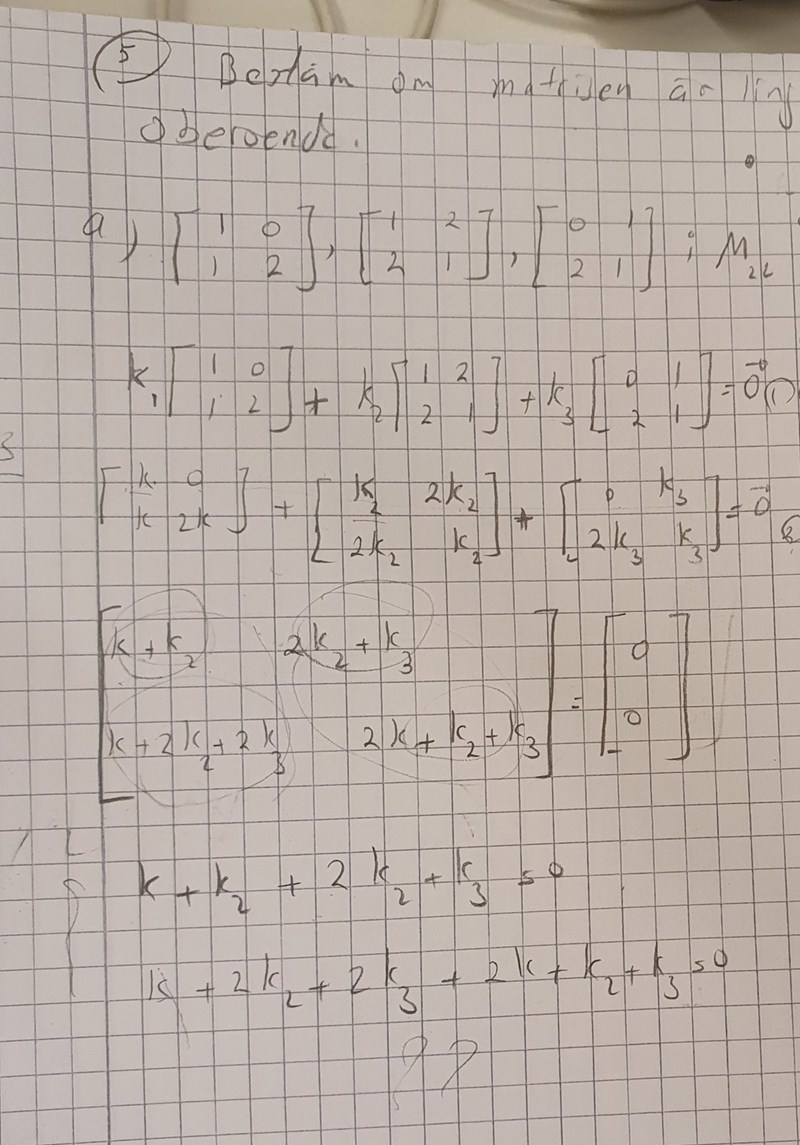 5 Bestäm om matrisen är linj
oberoende.
a) [1 0; 1 2], [1 2; 2 1], [0 1; 2 1] i M22
k1 [1 0; 1 2] + k2 [1 2; 2 1] + k3 [0 1; 2 1] = 0⃗ (1)
3
[k 0; k 2k] + [k2 2k2; 2k2 k2] + [0 k3; 2k3 k3] = 0⃗
[k + k2 2k2 + k3; k + 2k2 + 2k3 2k + k2 + k3] = [0; 0]
k + k2 + 2k2 + k3 = 0
k + 2k2 + 2k3 + 2k + k2 + k3 = 0
??